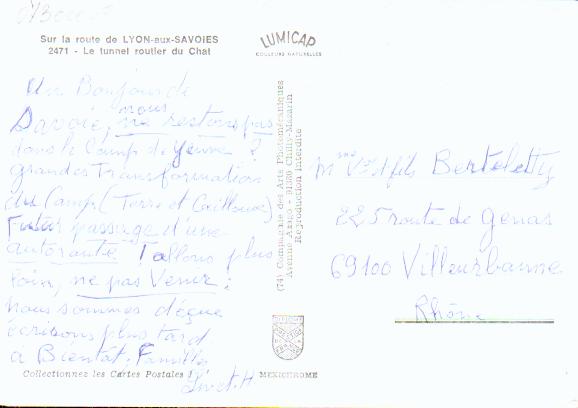 Sur la route de LYON-aux-SAVOIES
2471 - Le tunnel routier du Chat
LUMICAP
COULEURS NATURELLES
Un Bonjour de
Savoie, nous ne restons pas
dans le Camp de Yenne ?
grandes Transformation
du Camp (Terre et Cailloux)
Futur passage d'une
autoroute Tallons plus
loin, ne pas Venir :
nous sommes déçue
écrirons plus tard
a Bientot. Famille
Collectionnez les Cartes Postales !
(74) Compagnie des Arts Photomécaniques
Avenue Arago - 91380 Chilly-Mazarin
Reproduction Interdite
MEXICHROME
Mme Vve et fils
225 route de Genas
69100 Villeurbanne
Rhône